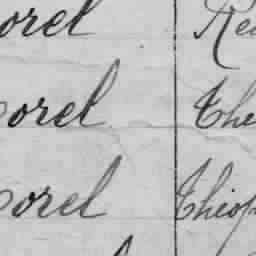 orel Re
orel The
orel Thiop